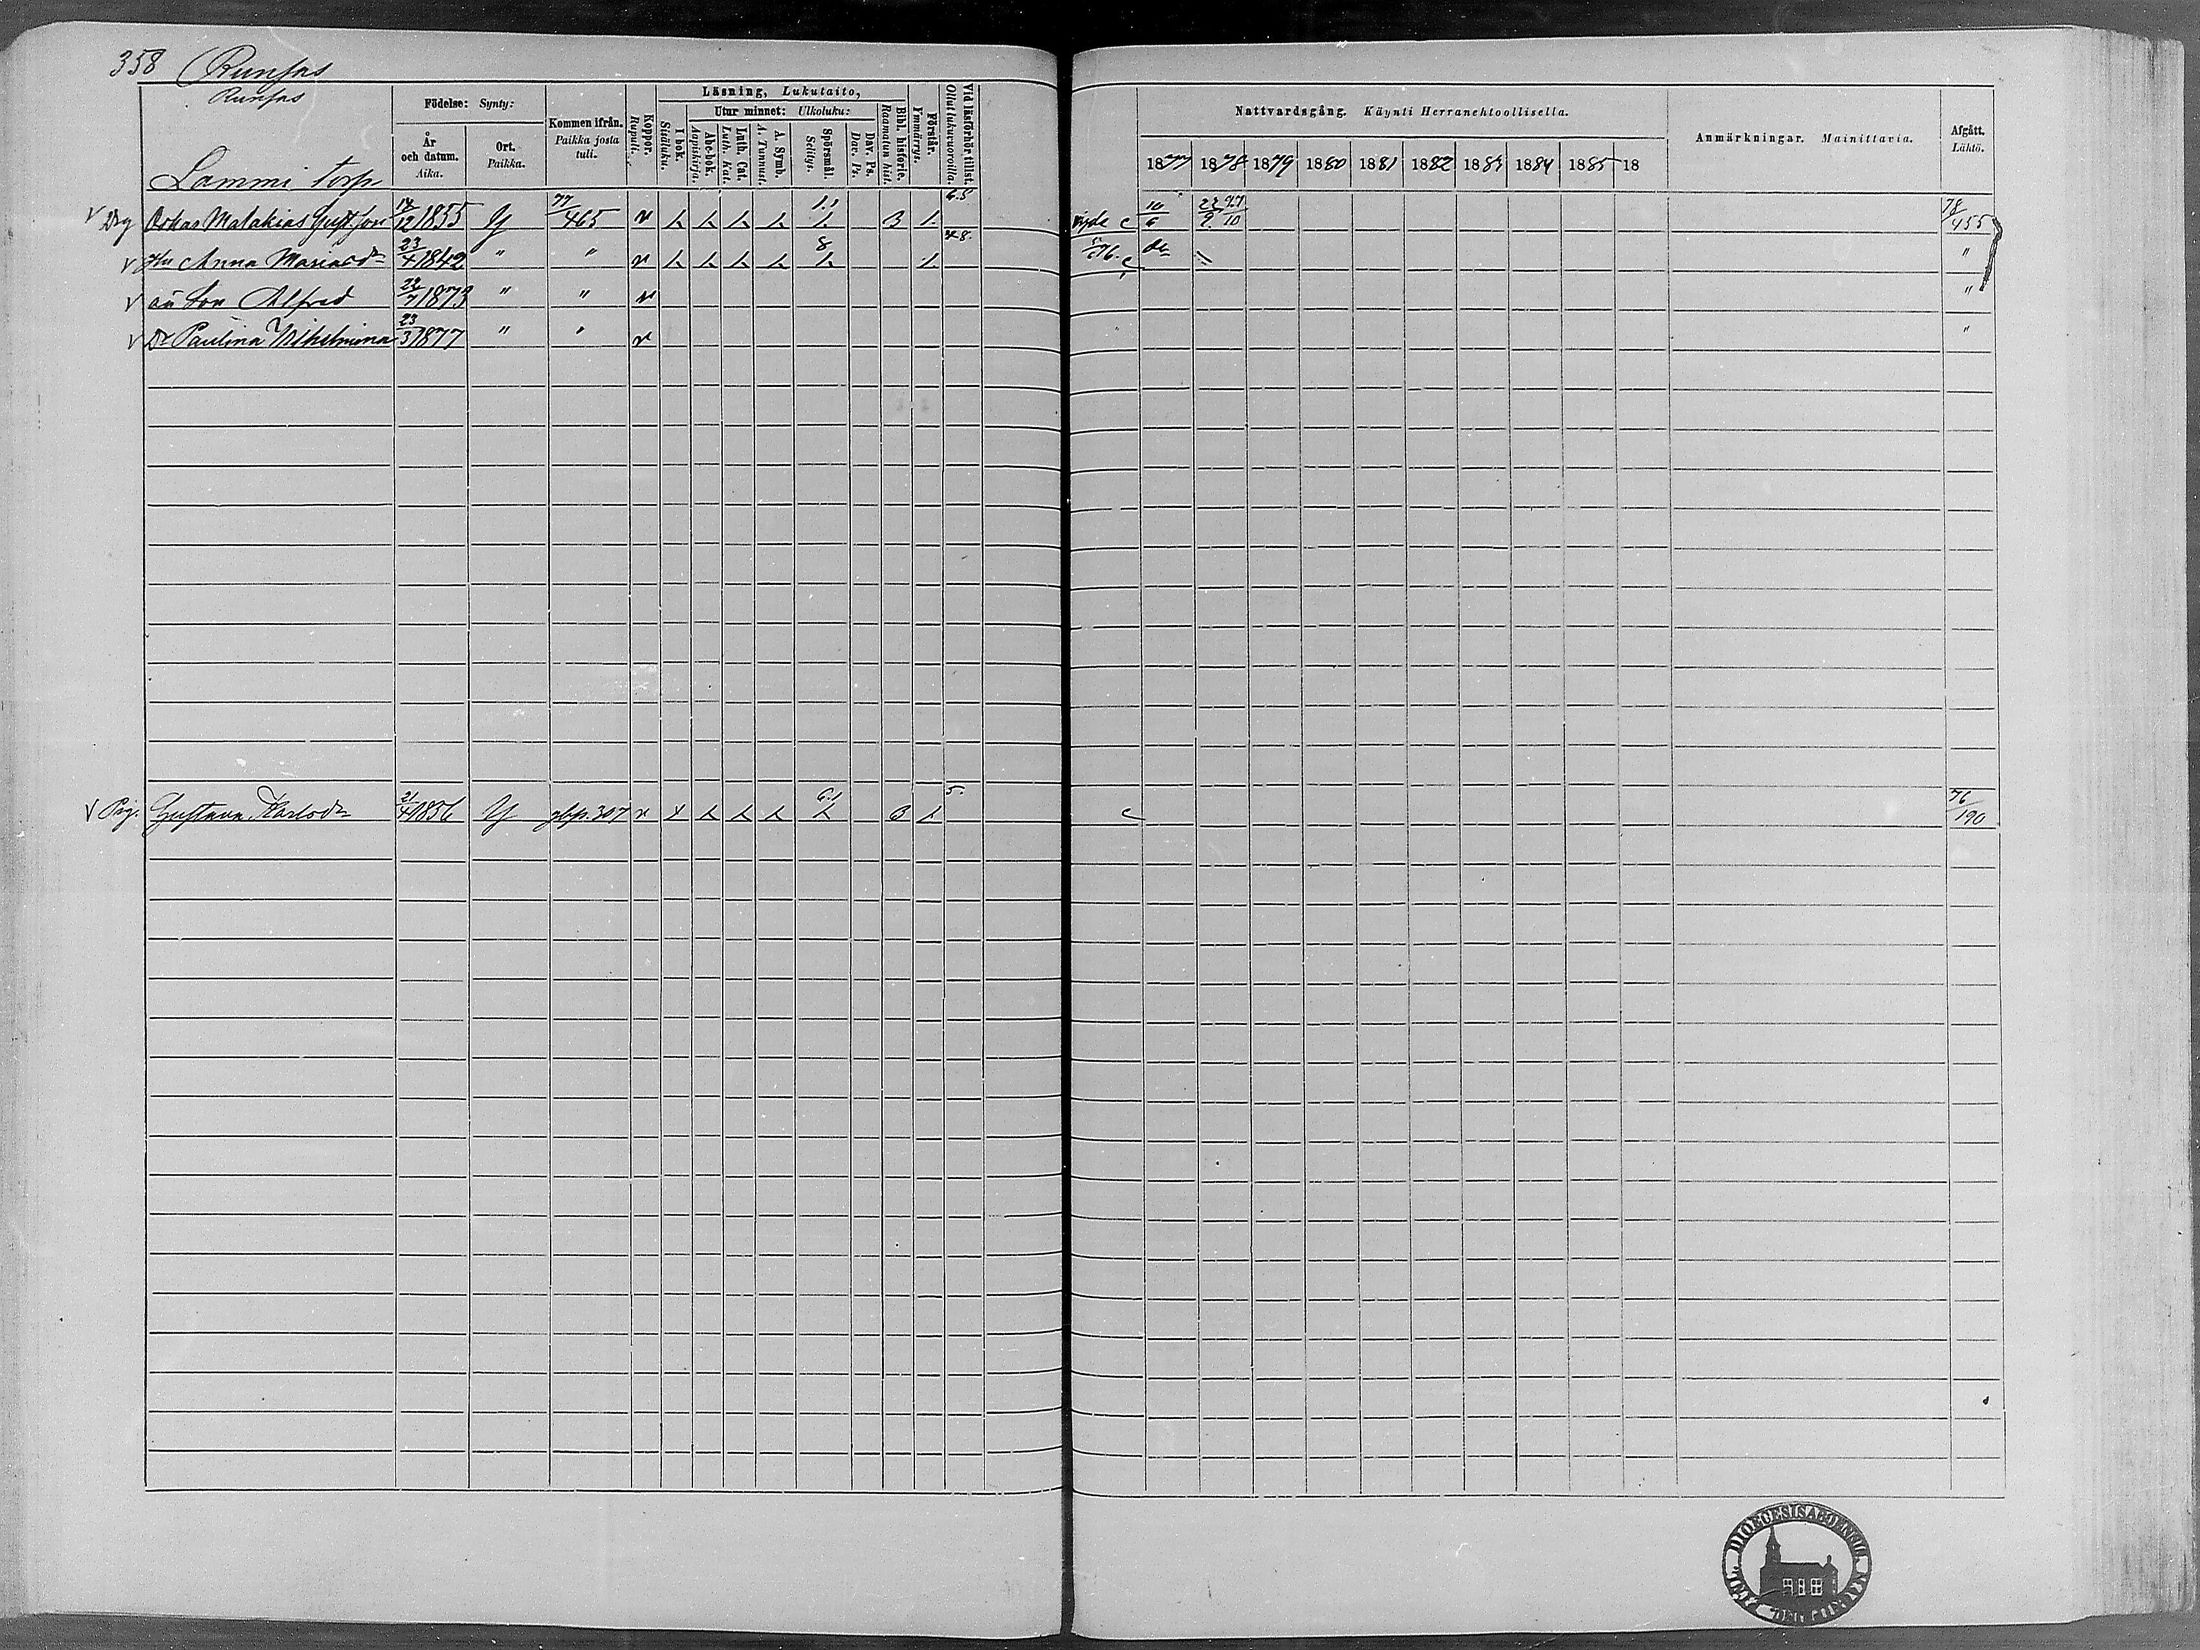 358 Runsas
Runsas
Lammi torp
Födelse: Synty:
År och datum. Aika.
Ort. Paikka.
Kommen ifrån. Paikka josta tuli.
Koppor. Rupuli.
Läsning, Lukutaito,
I bok. Sisäluku.
Utur minnet: Ulkoluku:
Abc-bok. Aapiskirja.
Luth. Cat. Luth. Kat.
A. Symb. A. Tunnust.
Spörsmål. Selitys.
Dav. Ps. Dav. Ps.
Bibl. historie. Raamatun hist.
Förstår. Ymmärrys.
Vid läsförhör tillst. Ollut lukuvuoroilla.
Nattvardsgång. Käynti Herranehtoollisella.
1877 1878 1879 1880 1881 1882 1883 1884 1885 18
Anmärkningar. Mainittavia.
Afgått. Lähtö.
v Drg Oskar Malakias Gust.son 14/12 1855 Y 77/465 v 1.1 3 1. 6.5 c 10/6 22/9 27/10 78/455
v Hu Anna Maria dr 23/4 1842 " " v 8 4.8. 5/76. c do " "
v Son Alfred 22/7 1873 " " v "
v Dr Paulina Wilhelmina 23/3 1877 " " v "
v Pig. Gustava Karlsdr 21/4 1856 Y gbp. 307 v 6.1 3 5. c 76/190
DIOECESIS ABOENSIS